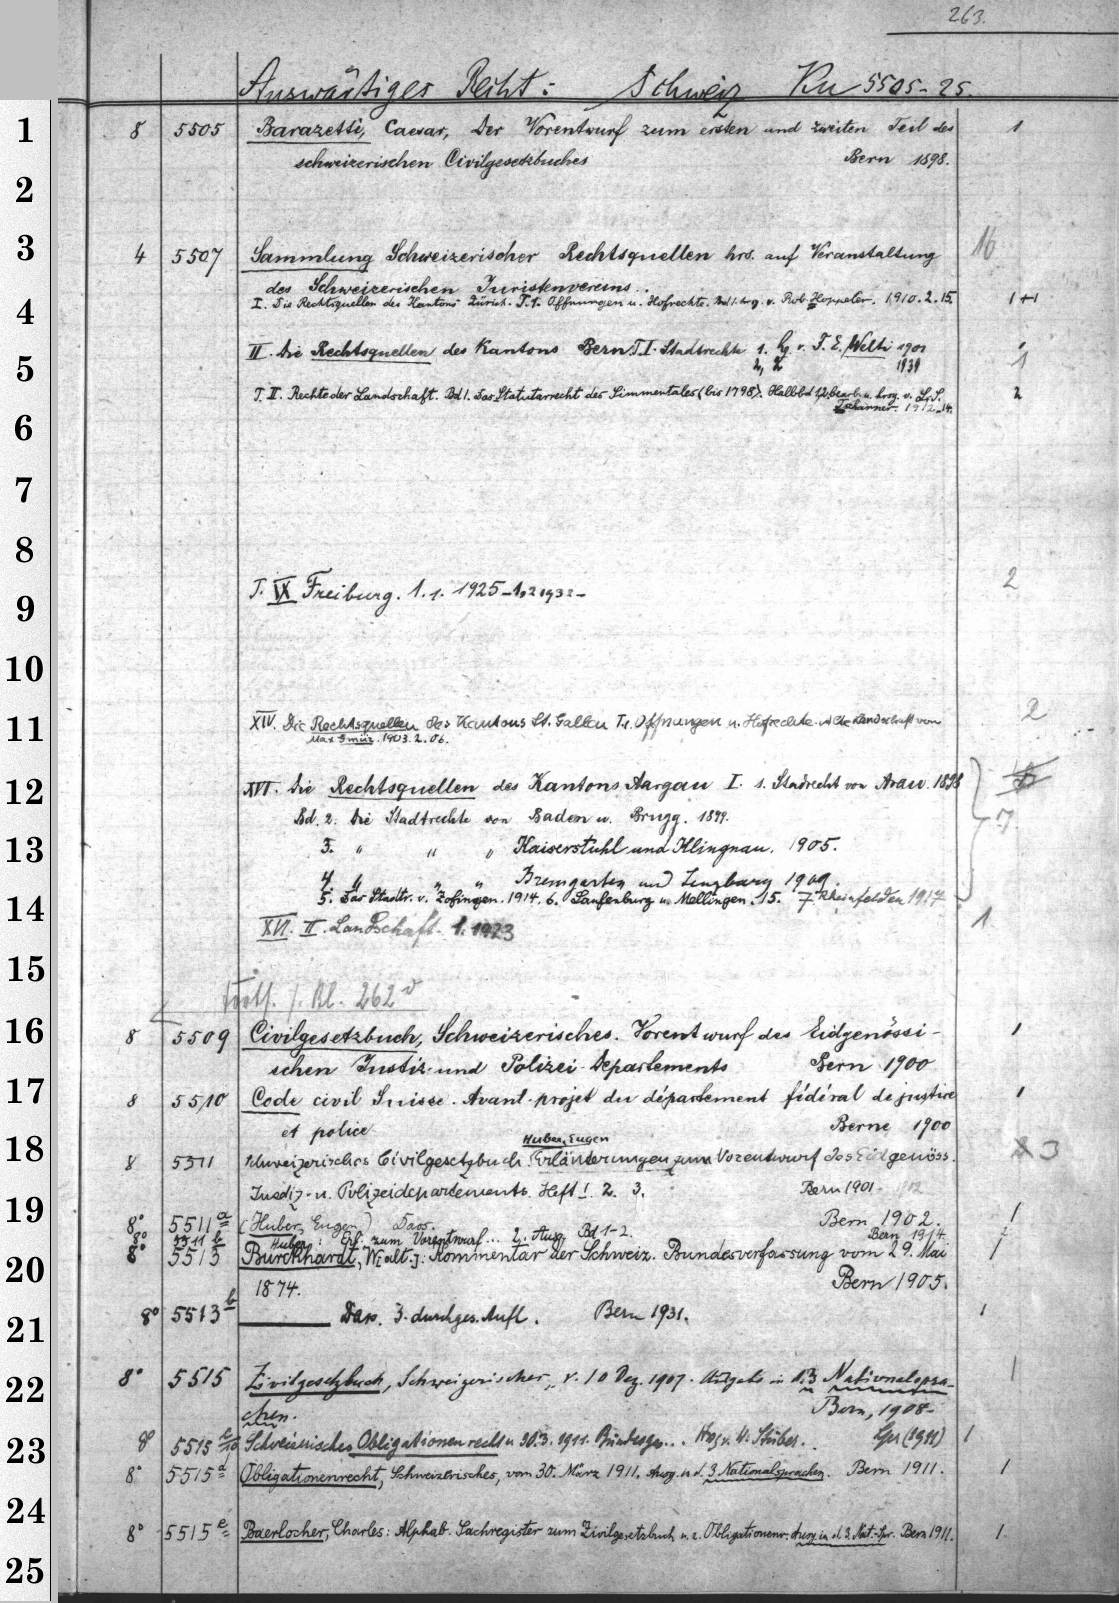 263.
Auswärtiges Recht: Schweiz Ku 5505-25.
1
8 5505 Barazetti, Caesar, Der Vorentwurf zum ersten und zweiten Teil des 1
schweizerischen Civilgesetzbuches Bern 1898.
2
3
4 5507 Sammlung Schweizerischer Rechtsquellen hrs. auf Veranstaltung 16
des Schweizerischen Juristenvereins..
4
I. Die Rechtsquellen des Kantons Zürich. T.1. Offnungen u. Hofrechte. Bd 1. hrg. v. Rob. Hoppeler. 1910. 2. 15. 1+1
II. Die Rechtsquellen des Kantons Bern T. I. Stadtrechte 1. hg v. F. E. Welti 1902
5
2, 1939 1
T. II. Rechte der Landschaft. Bd 1. Das Statutarrecht des Simmentales (bis 1798). Halbbd 1,2. bearb. u. hrsg. v. L. S. 2
Tscharner. 1912-14.
6
7
8
T. IX Freiburg. 1. 1. 1925-1,2 1932- 2
9
10
11
XIV. Die Rechtsquellen des Kantons St. Gallen T. 1. Offnungen u. Hofrechte. Alte Landschaft von 2
Max Gmür. 1903. 2. 06.
12
XVI. Die Rechtsquellen des Kantons Aargau I. 1. Stadtrecht von Arau. 1898
Bd. 2. Die Stadtrechte von Baden u. Brugg. 1899. 7
13
3. " " " Kaiserstuhl und Klingnau. 1905.
4. " " " Bremgarten und Lenzburg 1909.
14
5. Das Stadtr. v. Zofingen. 1914. 6. Laufenburg u. Mellingen. 15. 7 Rheinfelden 1917
XVI. II. Landschaft. 1. 1923 1
15
Fortf. f. Bl. 262v
16
8 5509 Civilgesetzbuch, Schweizerisches. Vorentwurf des Eidgenössi- 1
schen Justiz- und Polizei-Departements Bern 1900
17
8 5510 Code civil Suisse. Avant-projet du département fédéral de justice 1
et police Berne 1900
18
Huber, Eugen
8 5511 Schweizerisches Civilgesetzbuch. Erläuterungen zum Vorentwurf des Eidgenöss. 3
Justiz- u. Polizeidepartements. Heft 1. 2. 3. Bern 1901- 1902
19
8° 5511a (Huber, Eugen) Dass. Bern 1902. 1
8° 5511b Huber: Erl. zum Vorentwurf... 2. Ausg. Bd 1-2. Bern 1914. 2
8° 5513 Burckhardt, W[alt.]: Kommentar der Schweiz. Bundesverfassung vom 29. Mai 1
20
1874. Bern 1905.
8° 5513b Dass. 3. durchges. Aufl. Bern 1931. 1
21
22
8° 5515 Zivilgesetzbuch, Schweizerisches, v. 10 Dez. 1907. Ausgabe in d. 3 Nationalspra- 1
chen. Bern, 1908-
23
8° 5515c/10 Schweizerisches Obligationenrecht v. 30. 3. 1911. Bundesges... Hrsg v. W. Stüber. (1911) 1
8° 5515d Obligationenrecht, Schweizerisches, vom 30. März 1911. Ausg. in d. 3 Nationalsprachen. Bern 1911. 1
24
8° 5515e Baerlocher, Charles: Alphab. Sachregister zum Zivilgesetzbuch u. z. Obligationenr. Ausg in d. 3. Nat.-Spr. Bern 1911. 1
25